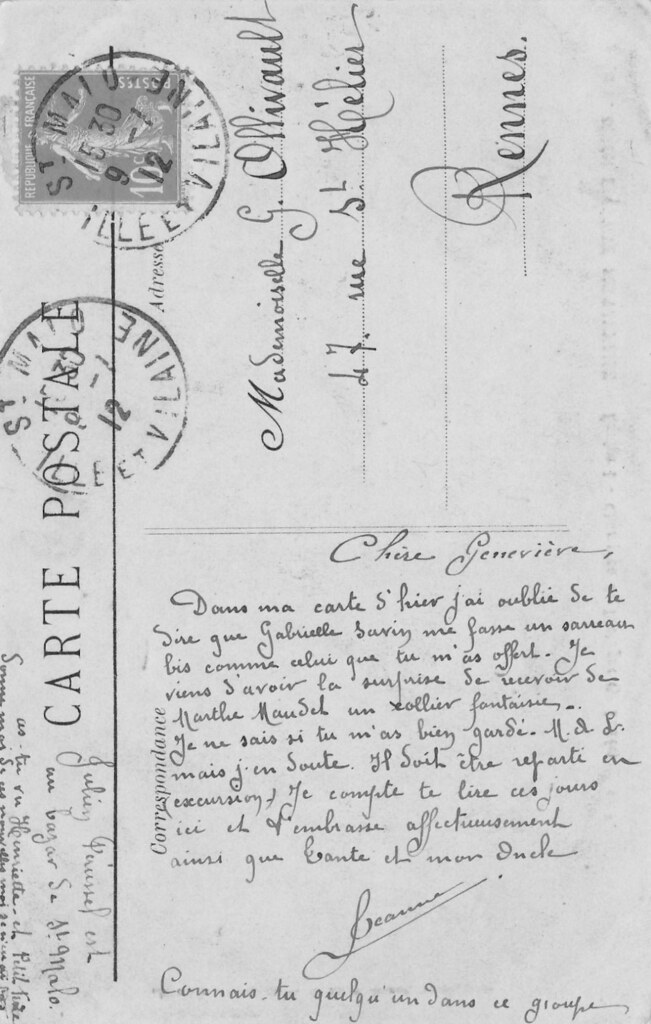 CARTE POSTALE
Correspondance
Adresse
REPUBLIQUE FRANÇAISE
POSTES
10c
ST MALO
15 30
9 - 1
12
ILLE ET VILAINE
ST MALO
9 - 1
12
ILLE ET VILAINE
Mademoiselle G. Ollivault
47 rue St Hélier
Rennes.
Chère Geneviève,
Dans ma carte d'hier j'ai oublié de te
dire que Gabrielle me fasse un sarreau
bis comme celui que tu m'as offert. Je
viens d'avoir la surprise de recevoir de
Marthe Maudet un collier fantaisie.
Je ne sais si tu m'as bien gardé. M. de L.
mais j'en doute. Il doit être reparti en
excursion, Je compte te lire ces jours
ici et t'embrasse affectueusement
ainsi que Tante et mon Oncle
Jeanne
Connais-tu quelqu'un dans ce groupe
Julien est
au bazar de St Malo.
as-tu vu Henriette et Petit
Donne moi de ses nouvelles